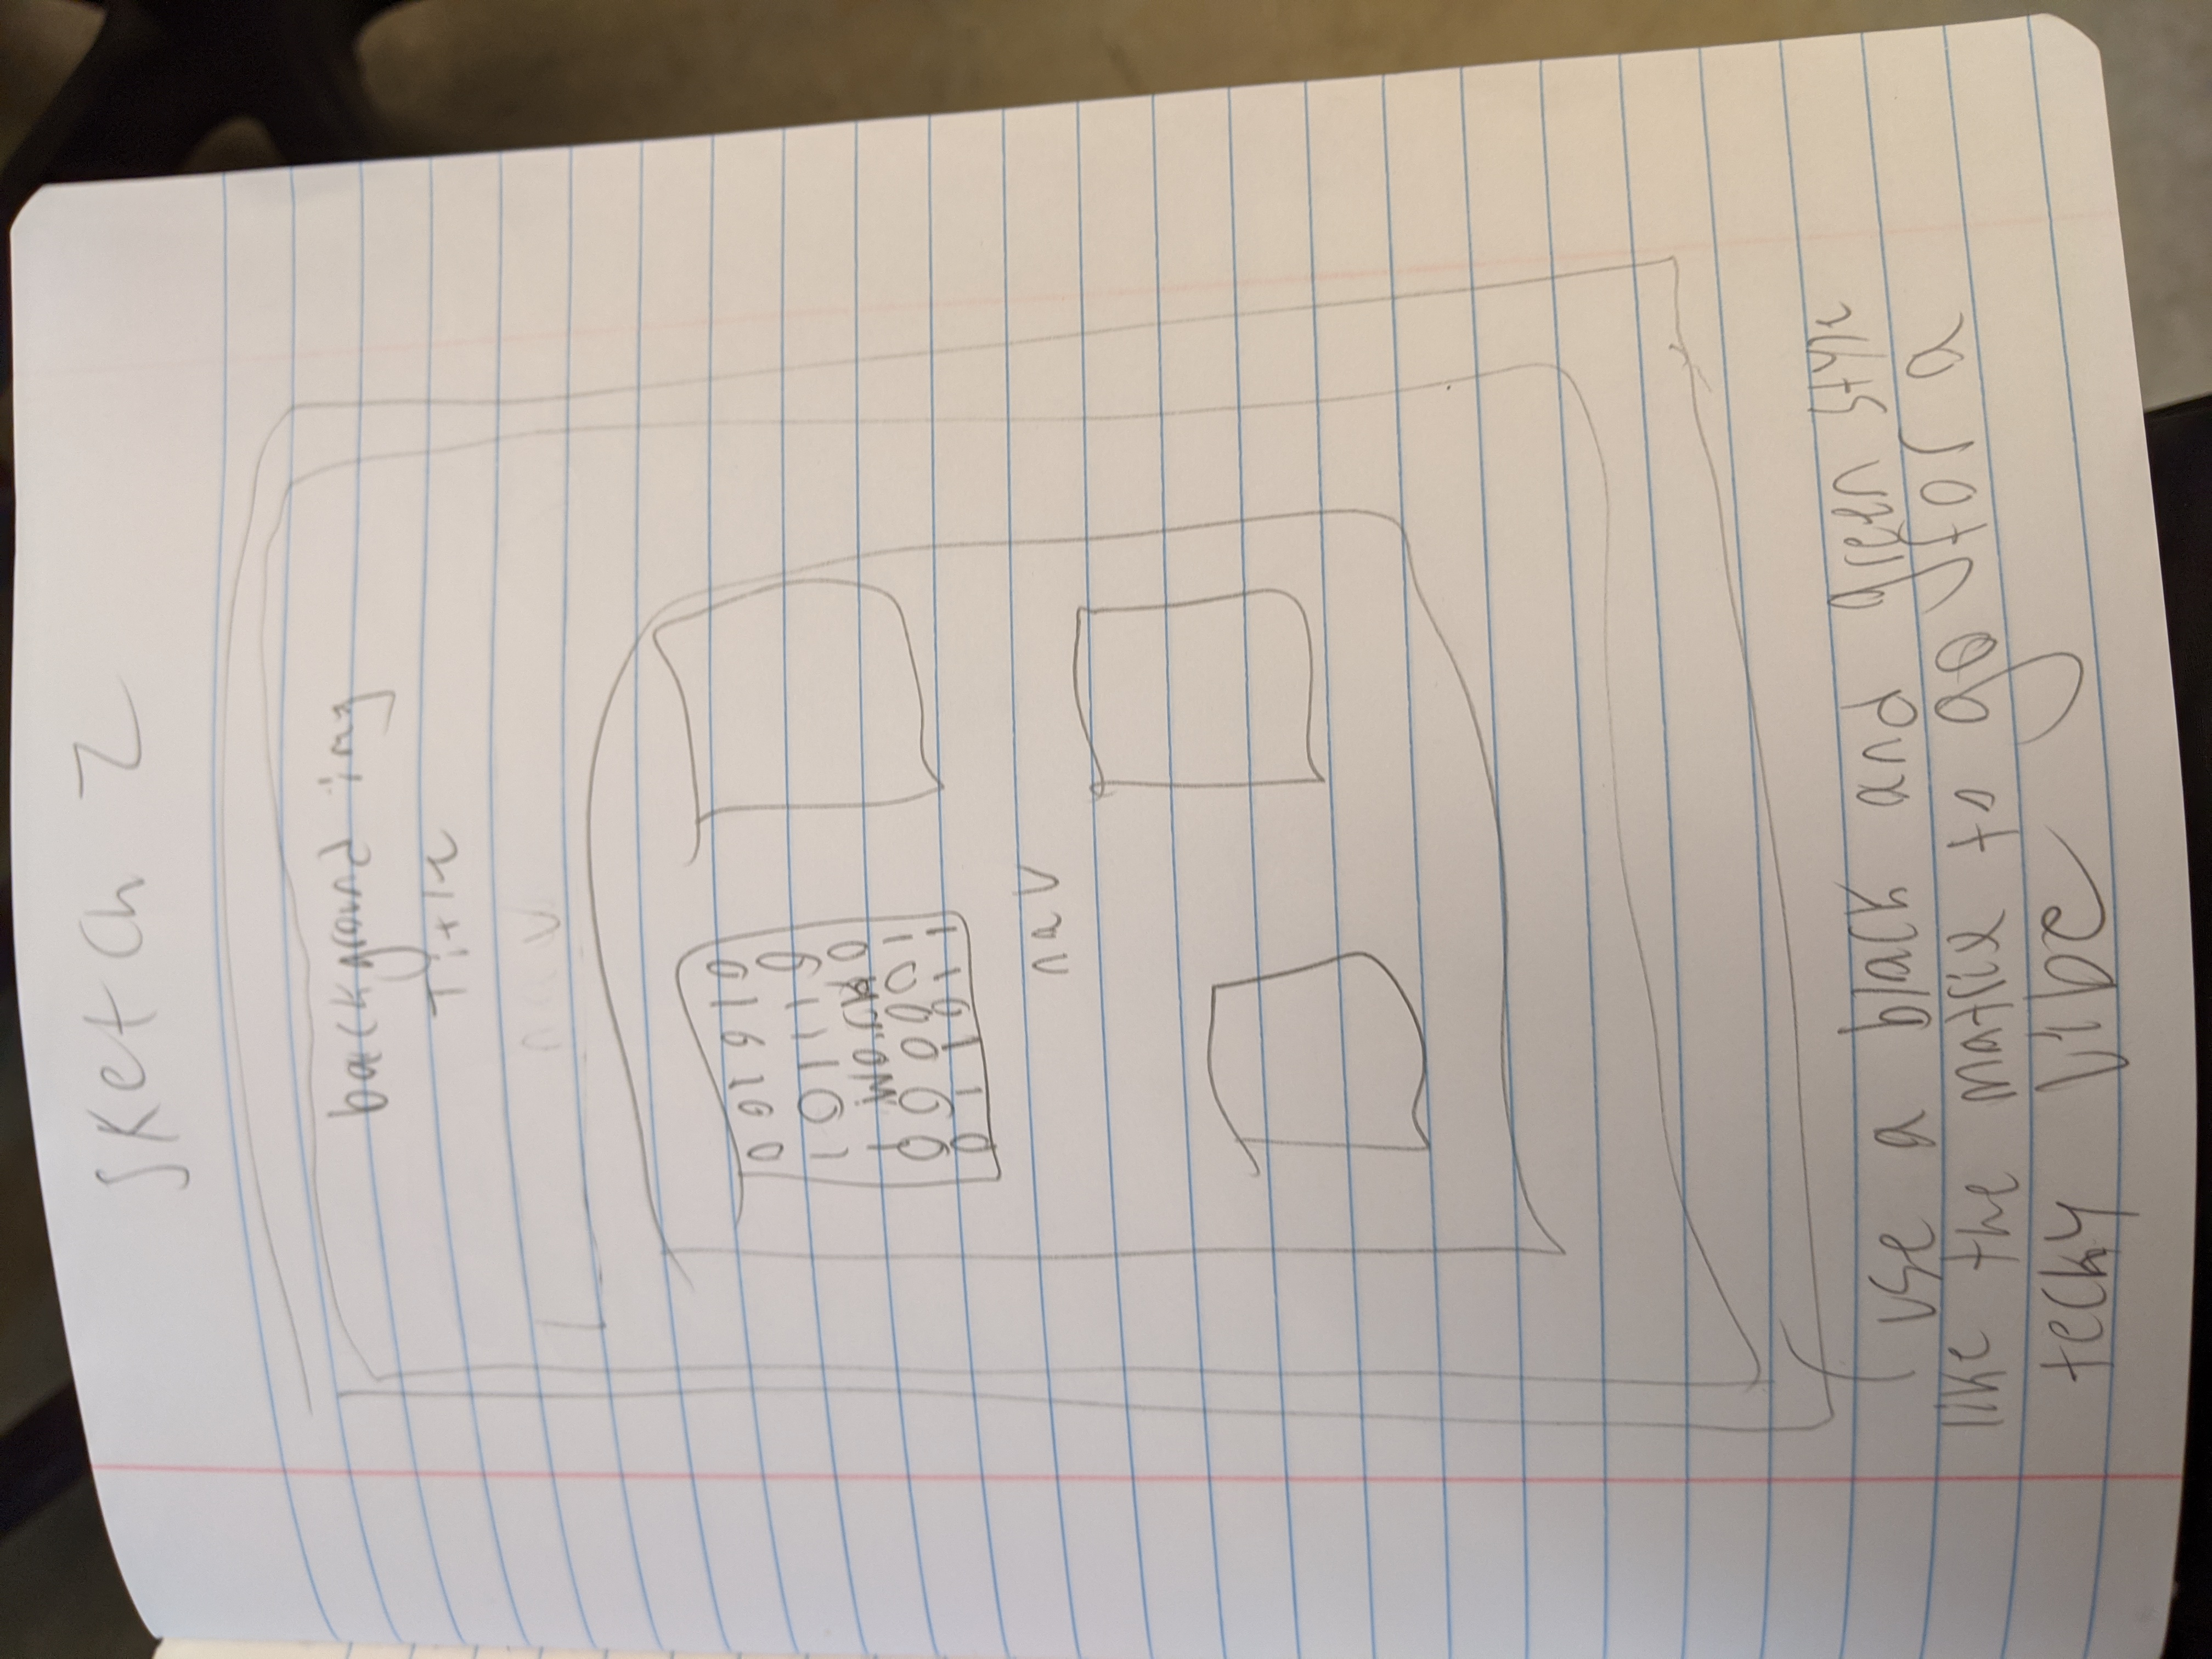 Sketch 2
background img
Title
nav
0 01 01 0
1 0 1 1 1 0
1 work 0
0 0 0 0 0 1
0 1 1 0 1 1
nav
use a black and green style
like the matrix to go for a
techy vibe